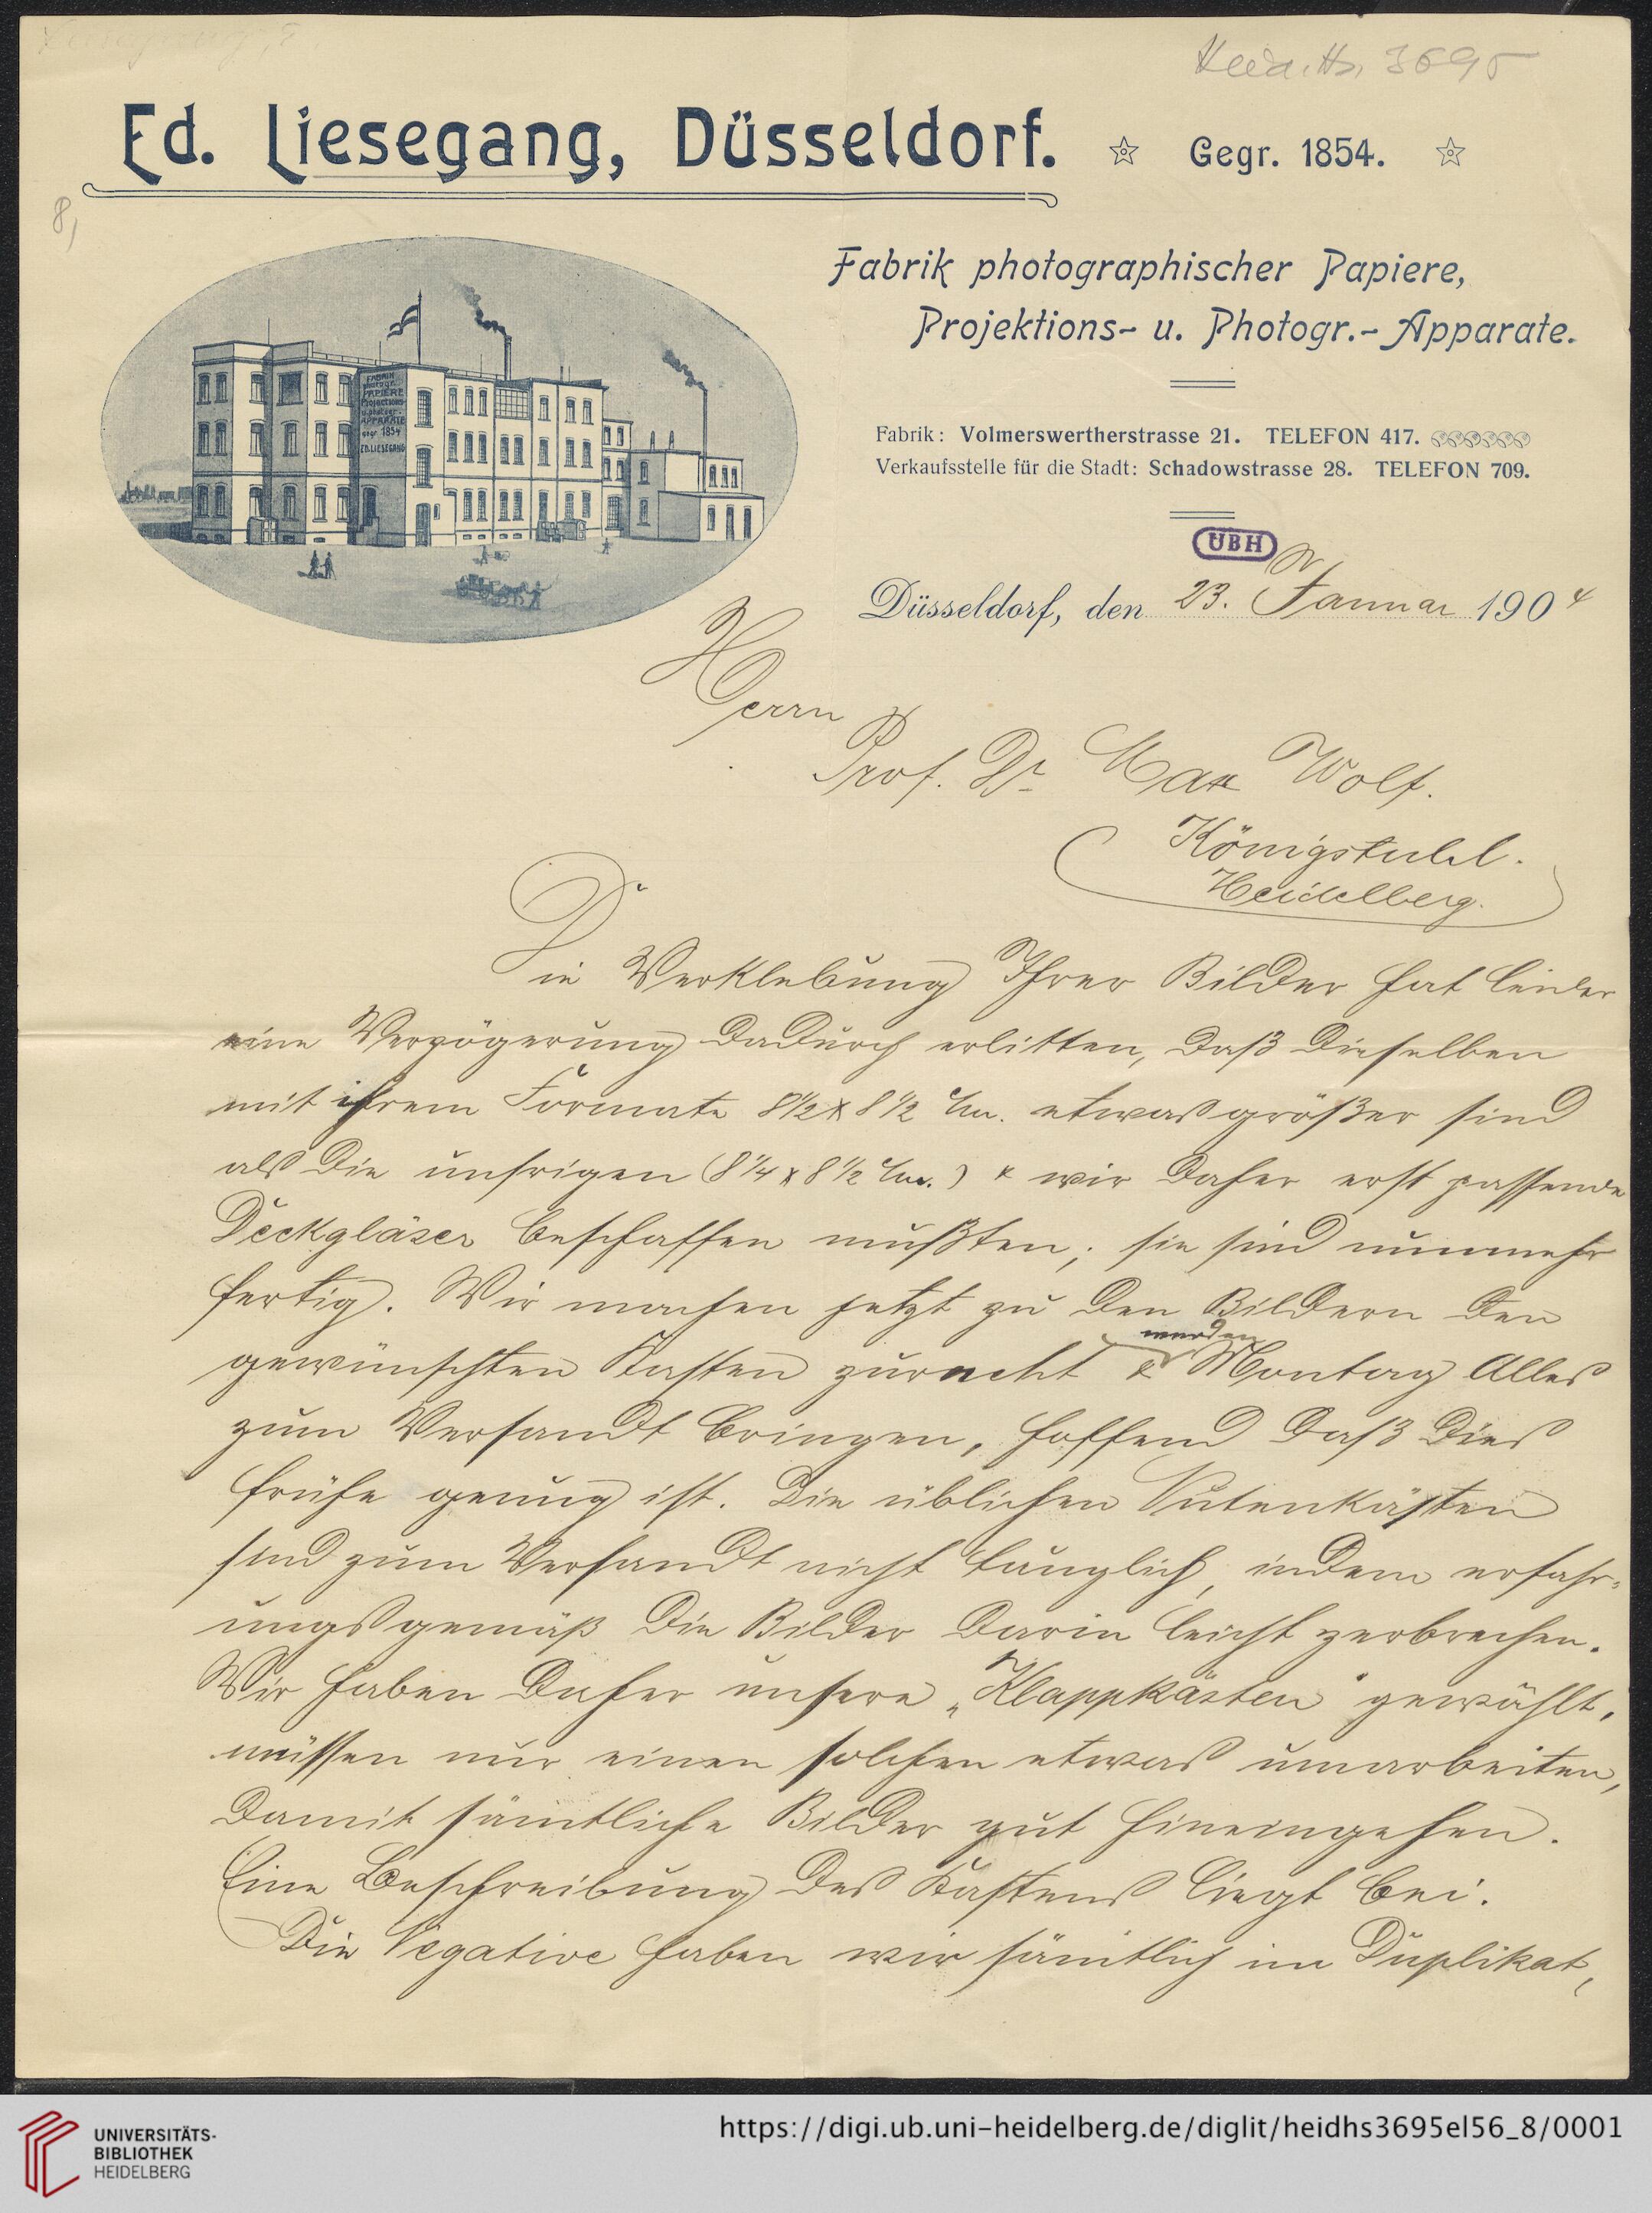 Heid. Hs. 3695
Ed. Liesegang, Düsseldorf. Gegr. 1854.
8,
Fabrik photographischer Papiere,
Projektions- u. Photogr.-Apparate.
FABRIK
photogr.
PAPIERE
Projections-
u. photogr.
APPARATE
gegr. 1854
ED. LIESEGANG
Fabrik: Volmerswertherstrasse 21. TELEFON 417.
Verkaufsstelle für die Stadt: Schadowstrasse 28. TELEFON 709.
UBH
Düsseldorf, den 23. Januar 1904
Herrn
Prof. Dr. Max Wolf.
Königstuhl.
Heidelberg.
Die Verklebung Ihrer Bilder hat leider
eine Verzögerung dadurch erlitten, daß dieselben
mit ihrem Formate 8½ x 8½ c/m. etwas größer sind
als die unsrigen (8¼ x 8½ c/m.) & wir daher erst passende
Deckgläser beschaffen mußten; sie sind nunmehr
fertig. Wir machen jetzt zu den Bildern den
gewünschten Kasten zurecht & werden Montag Alles
zum Versandt bringen, hoffend daß dies
frühe genug ist. Die üblichen Nutenkästen
sind zum Versandt nicht tauglich, indem erfahr-
ungsgemäß die Bilder darin leicht zerbrechen.
Wir haben daher unsere „Klappkästen" gewählt,
müssen nur einen solchen etwas umarbeiten,
damit sämtliche Bilder gut hineingehen.
Eine Beschreibung des Kastens liegt bei.
Die Negative haben wir sämtlich im Duplikat,
UNIVERSITÄTS-
BIBLIOTHEK
HEIDELBERG
https://digi.ub.uni-heidelberg.de/diglit/heidhs3695el56_8/0001